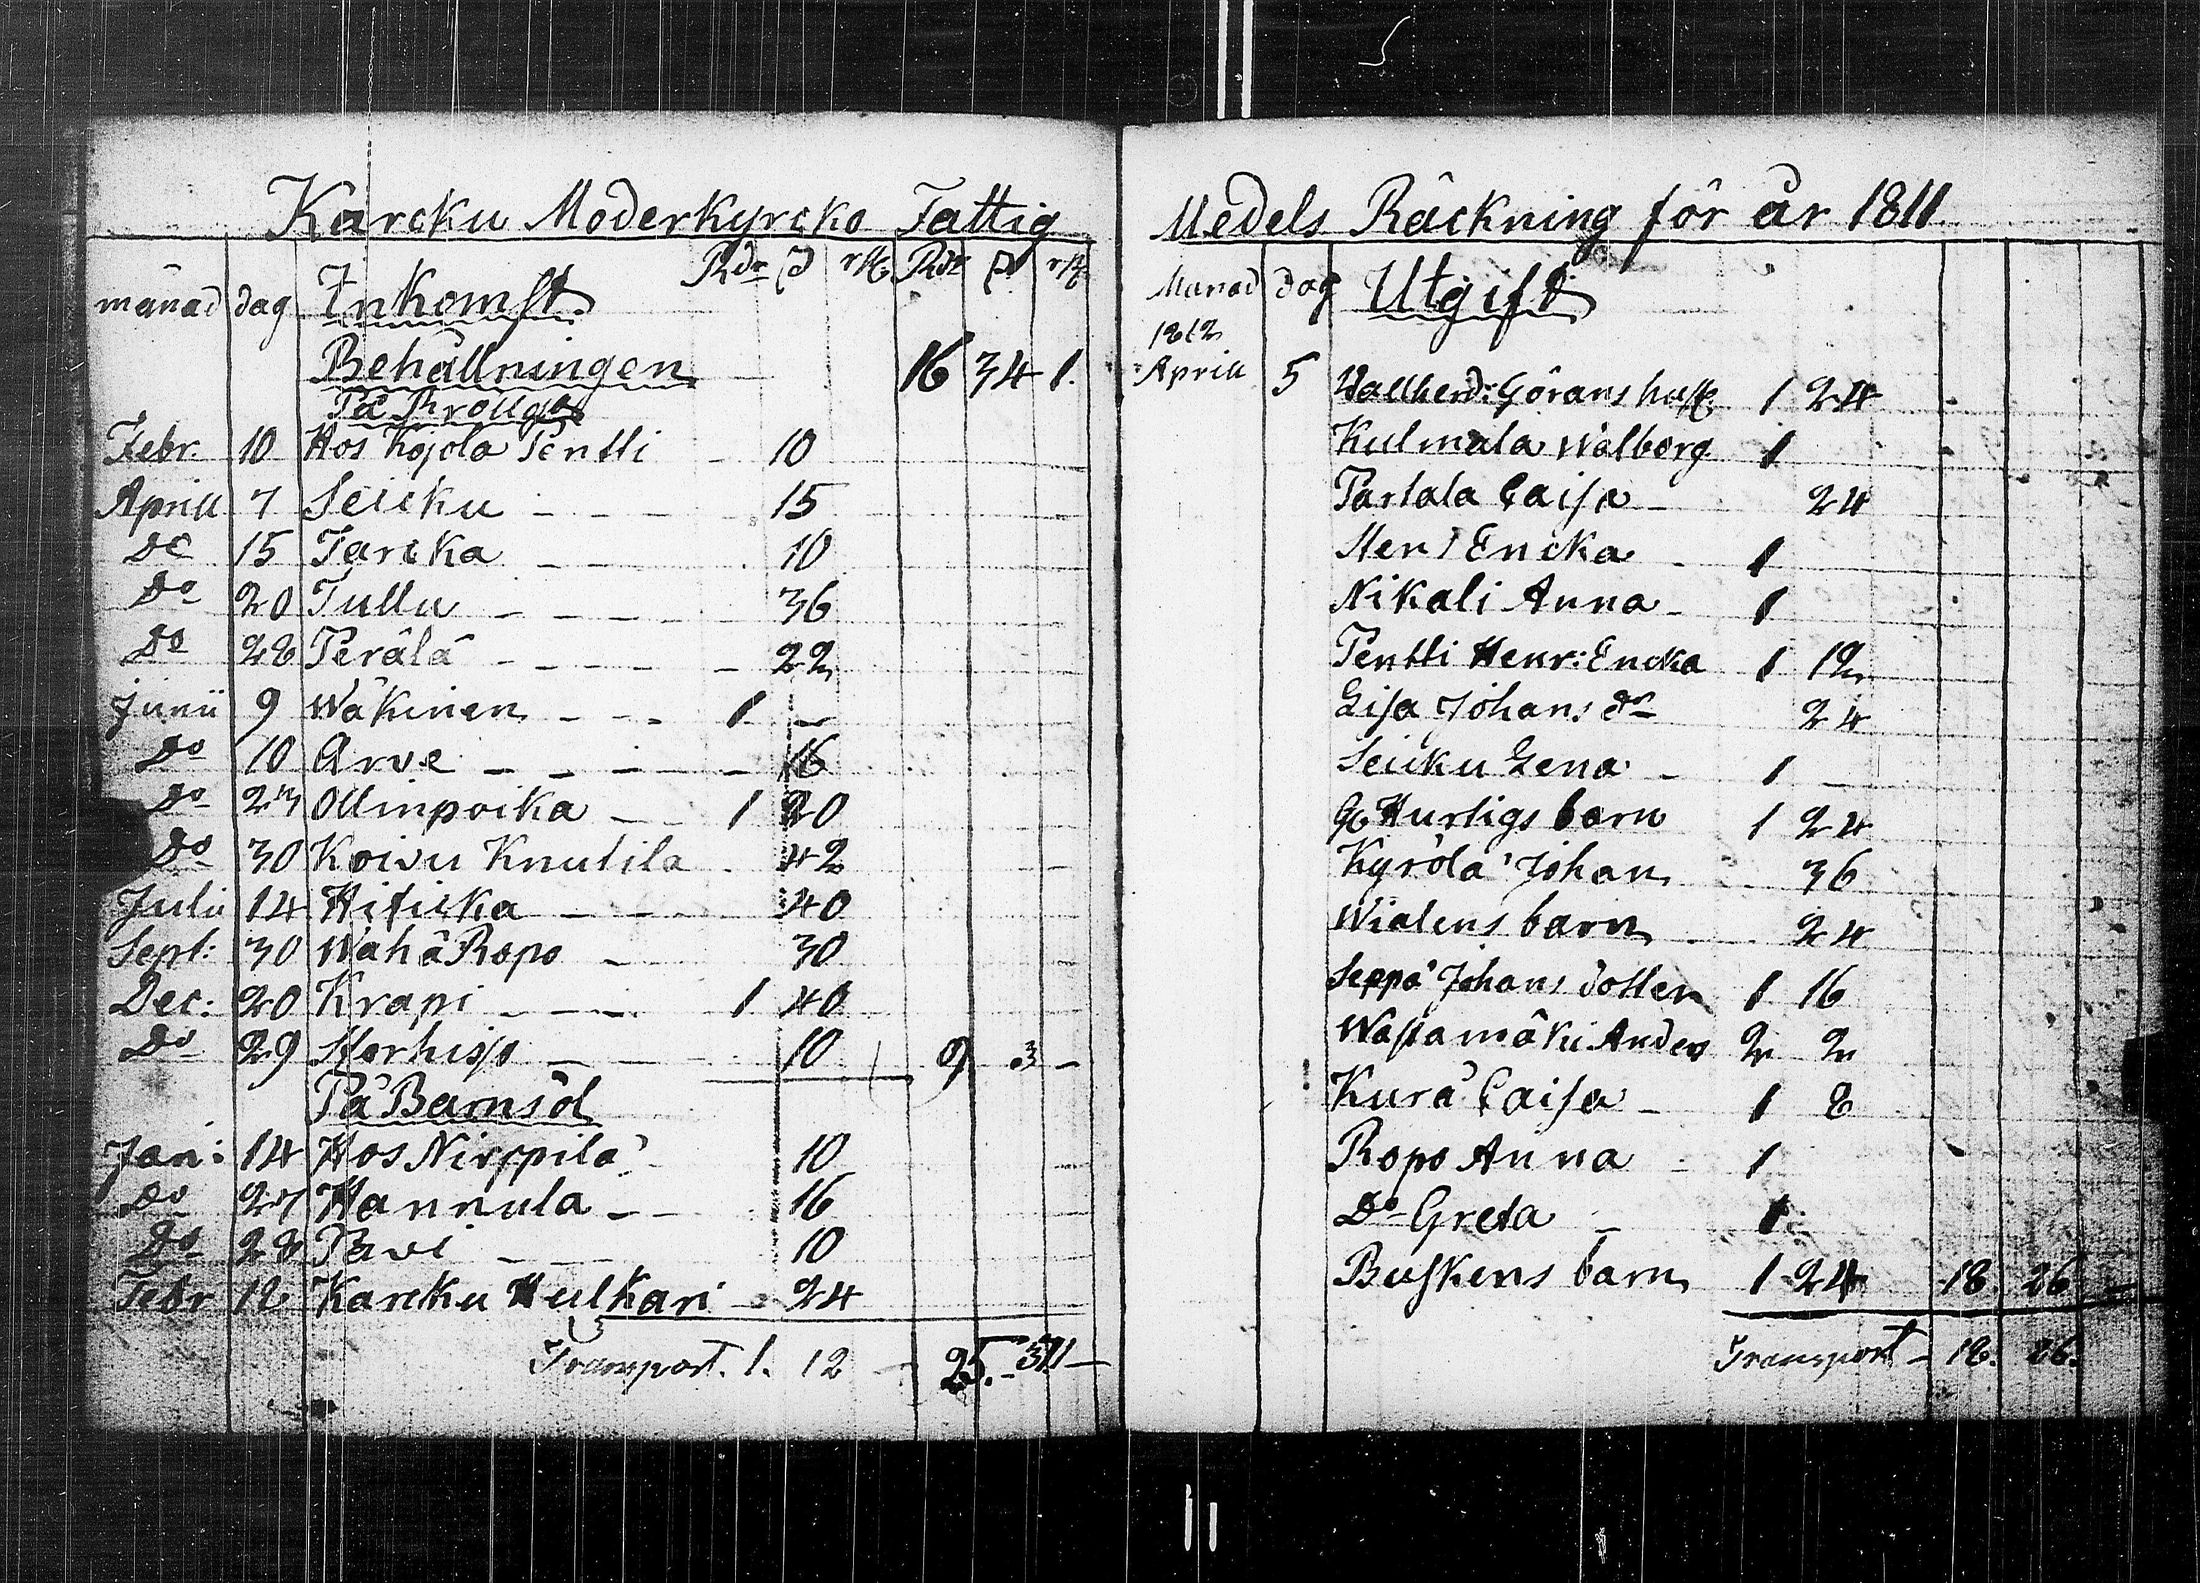 Karcku Moderkyrcko Fattig
månad dag Inkomst Rdr Rdr
Behållningen 16 34 1.
På Bröllop
Febr. 10 Hos Kojola Pentti - 10
Aprill 7 Seicku - - - 15
Do 15 Jarcka - - 10
Do 20 Tullu - - - - 36
Do 28 Perälä - - - - - 22
Junii 9 Wäkinen - - - 1 -
Do 10 Arve - - - - - 16
Do 23 Ollinpoika - - 1 20
Do 30 Koivu Knutila - 42
Julii 14 Hiticka - - - 40
Sept: 30 WähäRopo - 30
Dec: 20 Krapi - - - 1 40
Do 29 - - 10 9 3 -
På Barnsöl
Jan: 14 Hos Nirppilä - 10
Do 27 Hannula - - 16
Do 28 - - 10
Febr 12 Karcku Hulkari - 24
Transport. 1. 12 - 25. - 37 1 -
Medels Räckning för år 1811
Månad dag Utgift
1812
Aprill 5 Wallherd: Görans 1 24
Kulmala Walborg 1
Partala Caisa - 24
Encka - 1
Nikali Anna - 1
Pentti Henr: Encka 1 12
Lisa Johans dr 24
Seicku Lena - 1 -
Hurtigs barn 1 24
Kyrölä Johan - 36
Wialens barn - 24
Seppä Johans dotter 1 16
Wastamäki Anders 2 2
Kurä Caisa - 1 8
Ropo Anna - 1
Do Greta - 1
Buskens barn 1 24 18. 26
Transport - 18. 26.